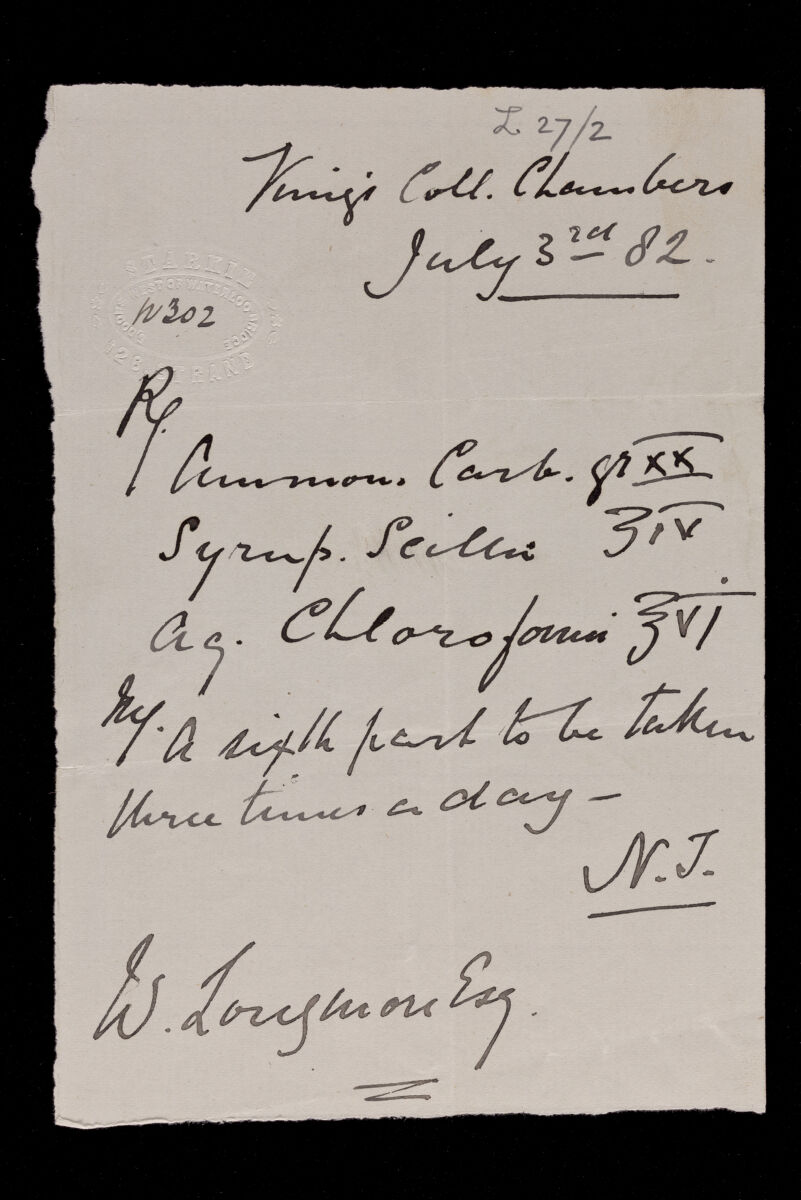 L 27/2
King's Coll. Chambers
July 3rd 82.
STARKIE
WEST OF WATERLOO BRIDGE
N302
STRAND
℞
Ammon. Carb. gr xx
Syrup. Scillæ ʒiv
Aq. Chloroformi ℥vi
My. A sixth part to be taken
three times a day –
N.T.
W. Longmore Esq.